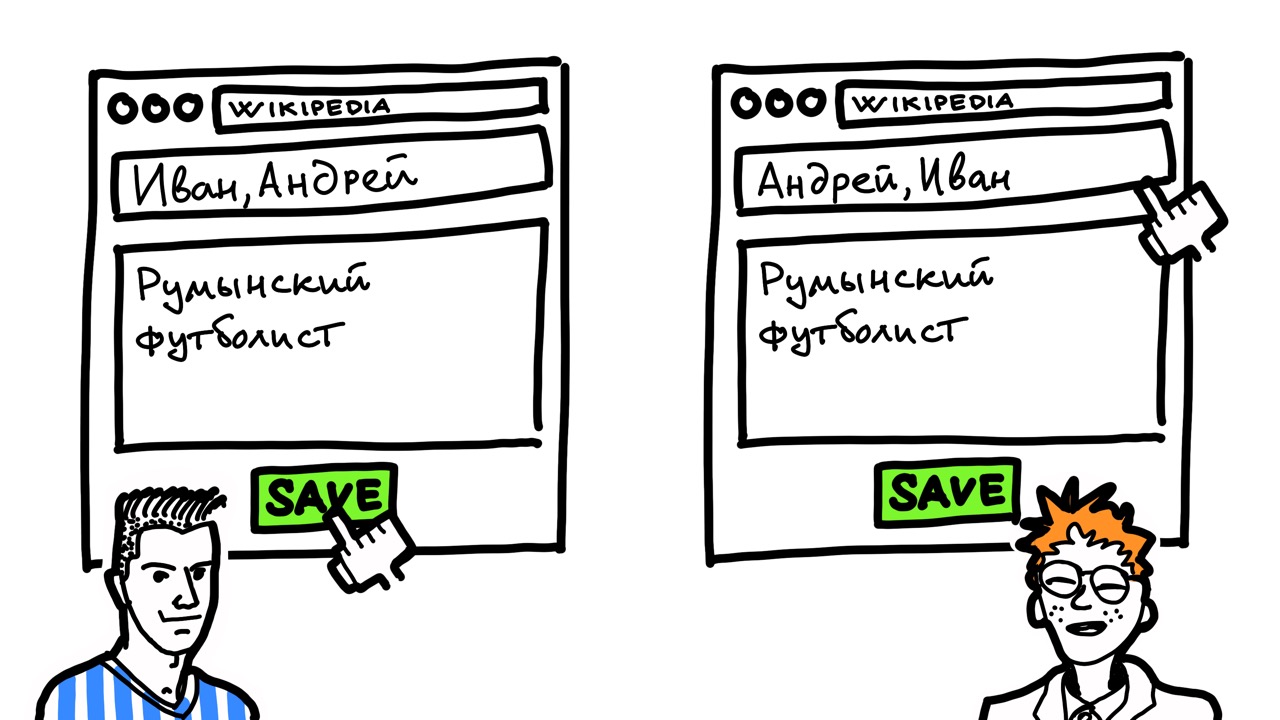 WIKIPEDIA
Иван, Андрей
Румынский
футболист
SAVE
WIKIPEDIA
Андрей, Иван
Румынский
футболист
SAVE